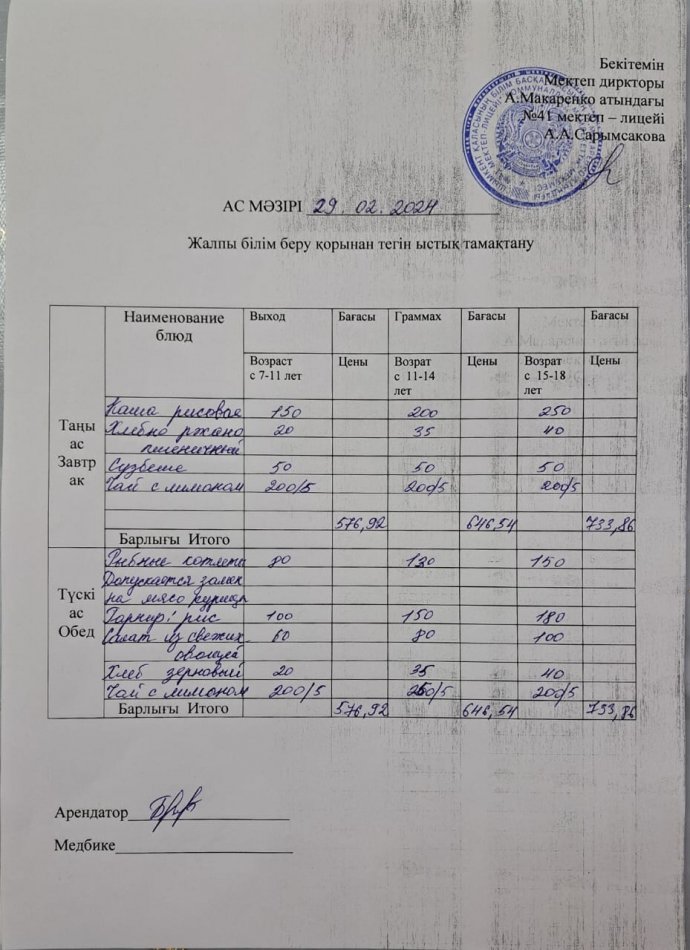 Бекітемін
Мектеп диркторы
А.Макаренко атындағы
№41 мектеп – лицейі
А.А.Сарымсакова
АС МӘЗІРІ 29. 02. 2024
Жалпы білім беру қорынан тегін ыстық тамақтану
Наименование блюд Выход Бағасы Граммах Бағасы Бағасы
Возраст с 7-11 лет Цены Возрат с 11-14 лет Цены Возрат с 15-18 лет Цены
Таңы ас Завтр ак
Каша рисовая 150 200 250
Хлебно ржано 20 35 40
пшеничный
Сузбеше 50 50 50
Чай с лимоном 200/5 200/5 200/5
576,92 646,54 733,86
Барлығы Итого
Түскі ас Обед
Рыбные котлеты 80 130 150
Допускается замен
на мясо курица
Гарнир: рис 100 150 180
Салат из свежих 60 80 100
овощей
Хлеб зерновый 20 35 40
Чай с лимоном 200/5 200/5 200/5
Барлығы Итого 576,92 646,54 733,86
Арендатор
Медбике